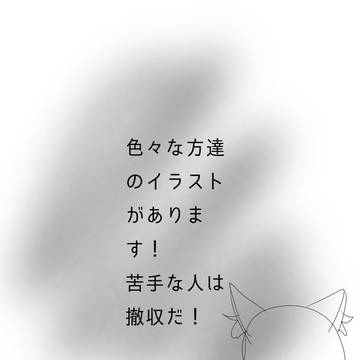 色々な方達
のイラスト
がありま
す！
苦手な人は
撤収だ！